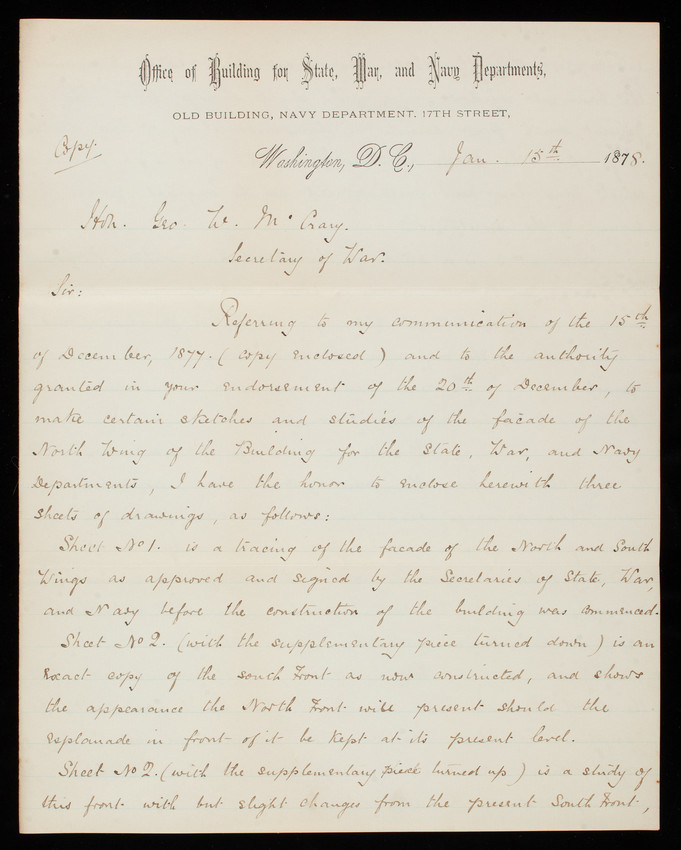 Office of Building for State, War, and Navy Departments,
OLD BUILDING, NAVY DEPARTMENT. 17TH STREET,
Copy.
Washington, D. C., Jan. 15th 1878.
Hon. Geo. W. McCrary.
Secretary of War.
Sir:
Referring to my communication of the 15th
of December, 1877. (copy enclosed) and to the authority
granted in your endorsement of the 20th of December, to
make certain sketches and studies of the facade of the
North Wing of the Building for the State, War, and Navy
Departments, I have the honor to enclose herewith three
sheets of drawings, as follows:
Sheet No 1. is a tracing of the facade of the North and South
Wings as approved and signed by the Secretaries of State, War,
and Navy before the construction of the building was commenced.
Sheet No 2. (with the supplementary piece turned down) is an
exact copy of the South Front as now constructed, and shows
the appearance the North Front will present should the
esplanade in front of it be kept at its present level.
Sheet No 2. (with the supplementary piece turned up) is a study of
this front with but slight changes from the present South Front,